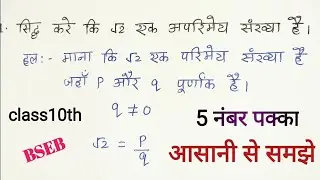 1. सिद्ध करे कि √2 एक अपरिमेय संख्या है।
हल:- माना कि √2 एक परिमेय संख्या है
जहाँ P और q पूर्णांक है।
q ≠ 0
class10th
5 नंबर पक्का
BSEB
√2 = P/q
आसानी से समझे